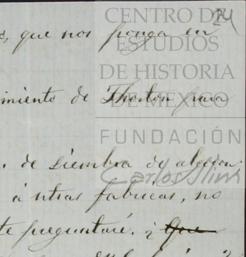 CENTRO DE
ESTUDIOS
DE HISTORIA
DE MÉXICO
FUNDACIÓN
Carlos Slim
que nos ponga en
imiento de Thorton para
de siembra de algodon
á otras fabricas, no
te preguntaré. ¿ Que